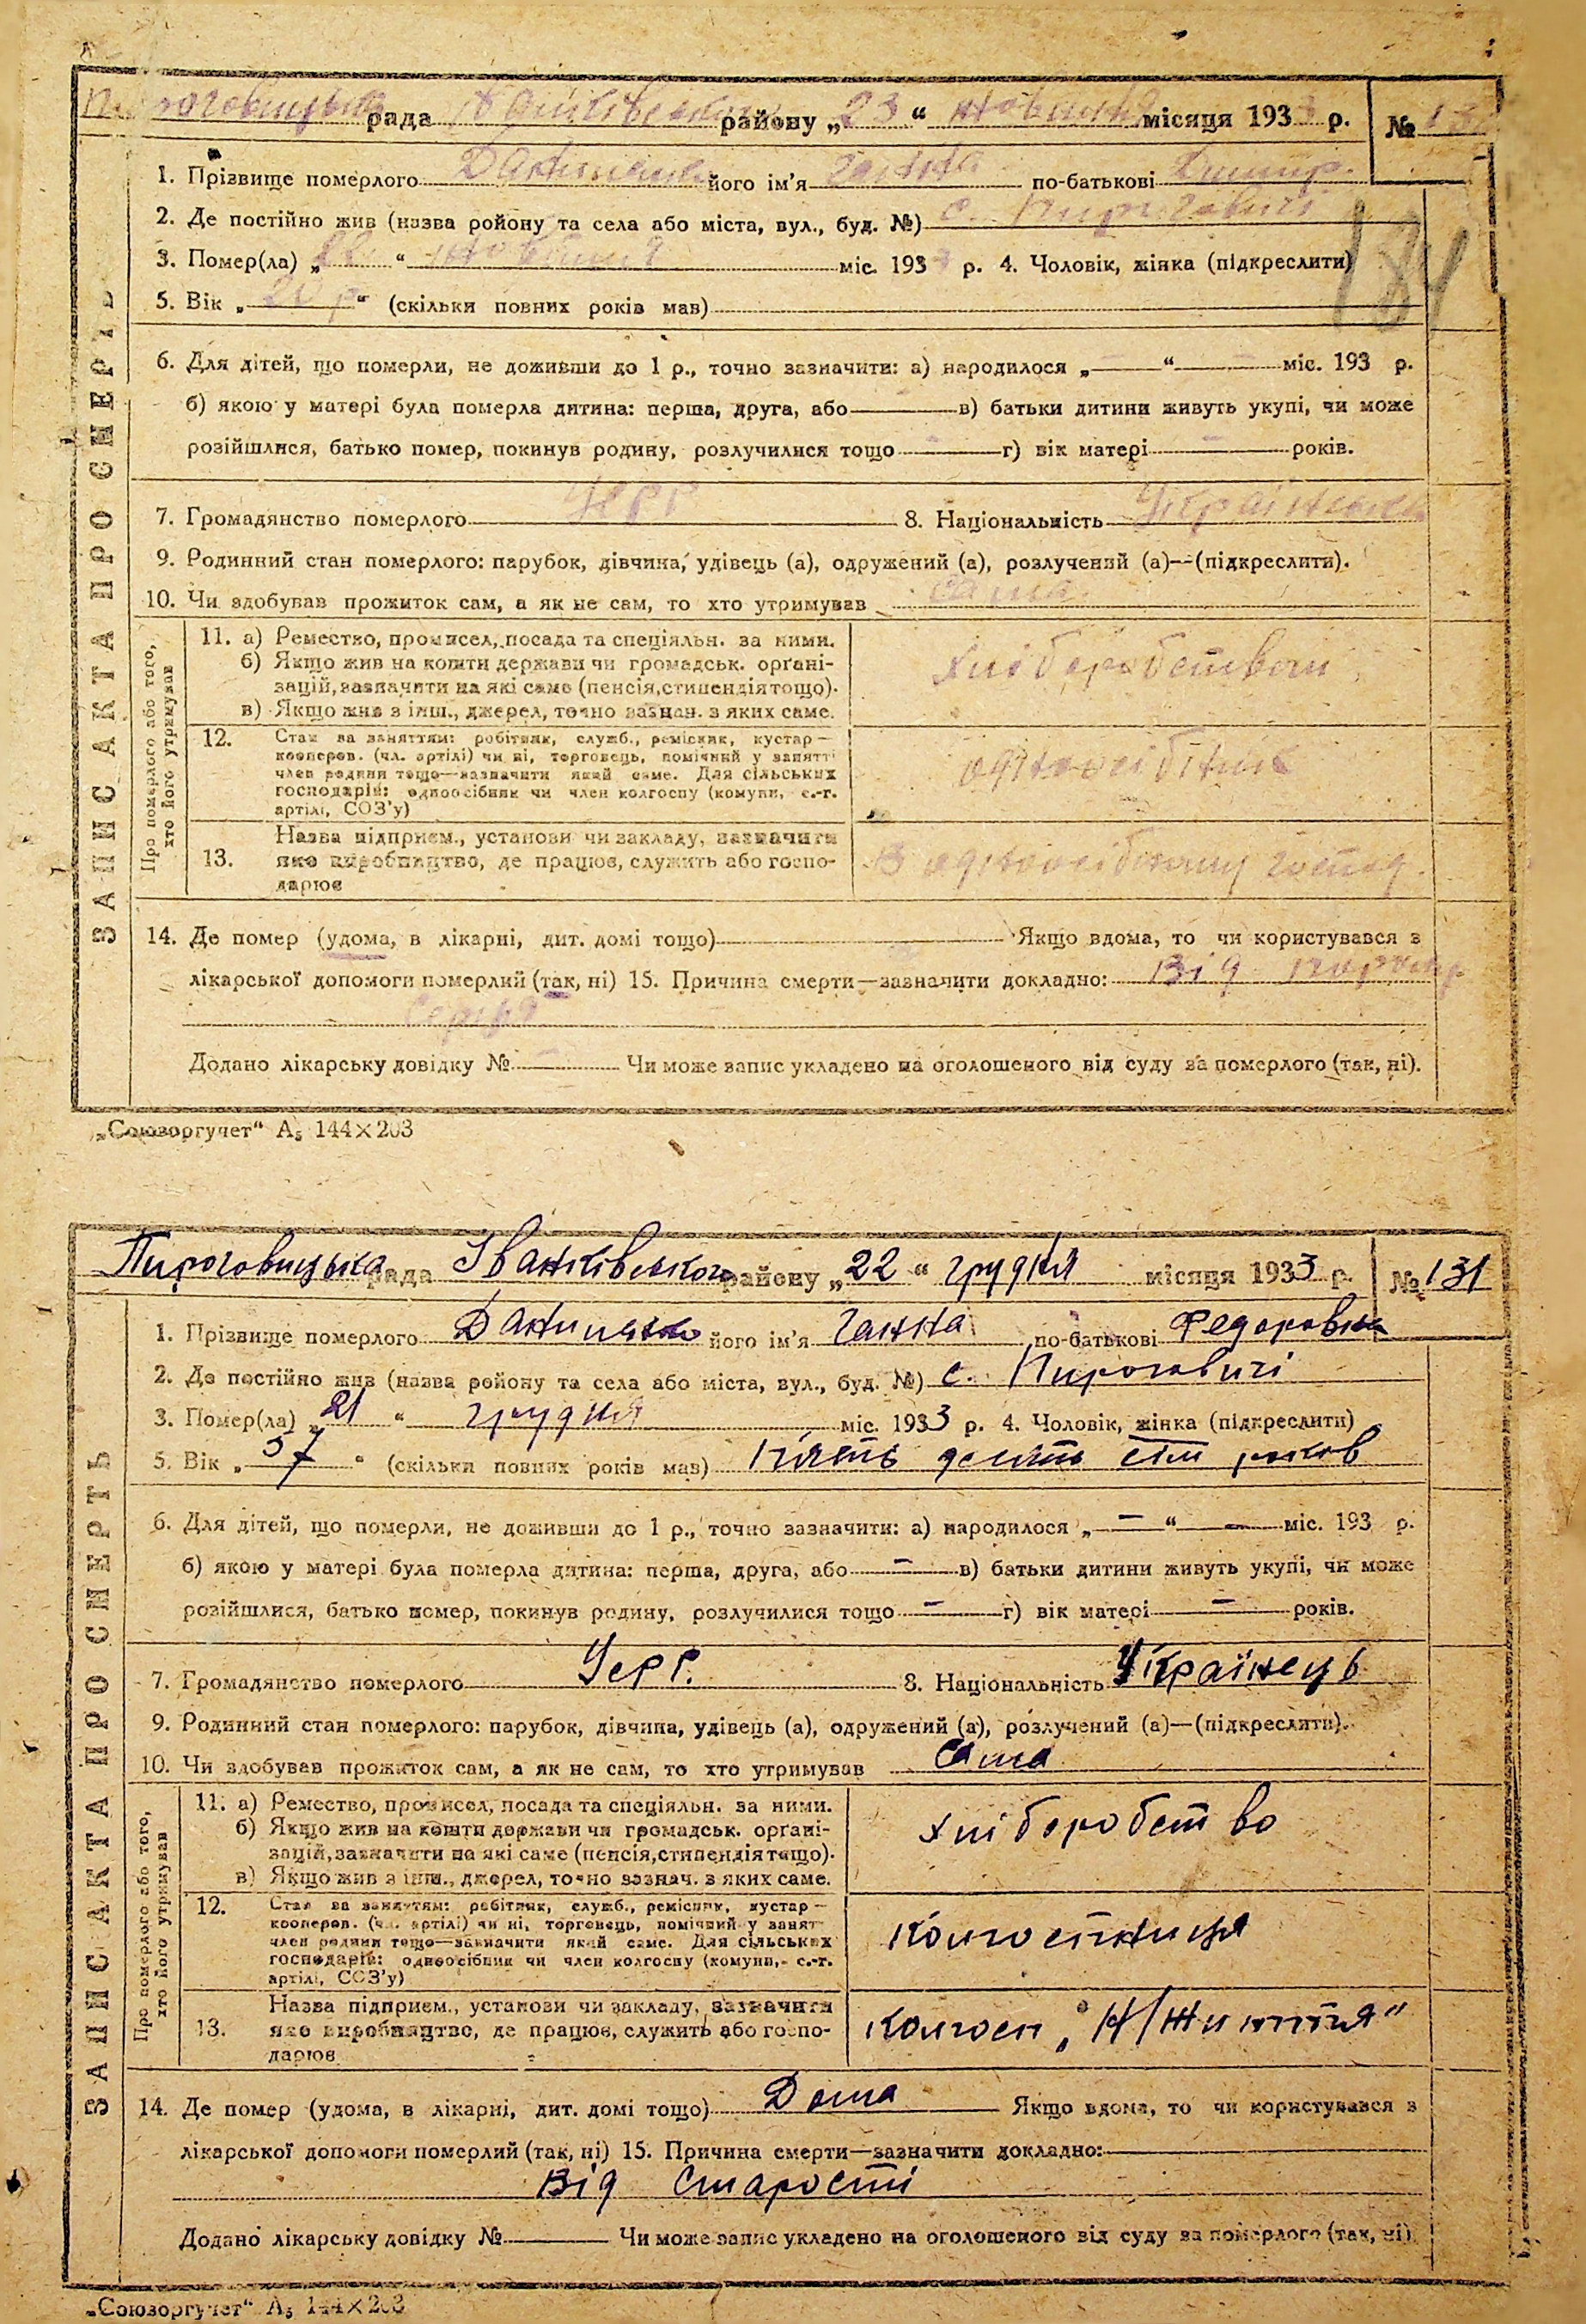 роговицька рада Іванківського району „23“ жовтня місяця 1933 р. №
1. Прізвище померлого Даниленко його ім'я Ганна по-батькові Дмитр.
2. Де постійно жив (назва ройону та села або міста, вул., буд. №) с. Пироговичі
3. Помер(ла) „ “ жовтня міс. 193 р. 4. Чоловік, жінка (підкреслити)
181
5. Вік „ р“ (скільки повних років мав)
6. Для дітей, що померли, не доживши до 1 р., точно зазначити: а) народилося „—“ — міс. 193 р.
б) якою у матері була померла дитина: перша, друга, або в) батьки дитини живуть укупі, чи може
розійшлися, батько помер, покинув родину, розлучилися тощо — г) вік матері — років.
7. Громадянство померлого УСРР 8. Національність Українська
9. Родинний стан померлого: парубок, дівчина, удівець (а), одружений (а), розлучений (а)—(підкреслити).
10. Чи здобував прожиток сам, а як не сам, то хто утримував сама
Про померлого або того, хто його утримував
11. а) Ремество, промисел, посада та спеціяльн. за ними.
б) Якщо жив на кошти держави чи громадськ. органі-
зацій, зазначити на які саме (пенсія, стипендія тощо).
в) Якщо жив з інш., джерел, точно зазнач. з яких саме.
Хліборобством
12. Стан за заняттям: робітник, служб., ремісник, кустар—
кооперов. (чл. артілі) чи ні, торговець, помічний у занятті
член родини тощо—зазначити який саме. Для сільських
господарів: одноосібник чи член колгоспу (комуни, с.-г.
артілі, СОЗ'у)
одноосібник
13. Назва підприєм., установи чи закладу, зазначити
яке виробництво, де працює, служить або госпо-
дарює
В одноосібному господ.
14. Де помер (удома, в лікарні, дит. домі тощо) Якщо вдома, то чи користувався з
лікарської допомоги померлий (так, ні) 15. Причина смерти—зазначити докладно: Від
серця
Додано лікарську довідку № — Чи може запис укладено на оголошеного від суду за померлого (так, ні).
ЗАПИС АКТА ПРО СМЕРТЬ
„Союзоргучет“ А₅ 144×203
Пироговицька рада Іванківського району „22“ грудня місяця 1933 р. № 131
1. Прізвище померлого Даниленко його ім'я Ганна по-батькові Федоровна
2. Де постійно жив (назва ройону та села або міста, вул., буд. №) с. Пироговичі
3. Помер(ла) „21“ грудня міс. 1933 р. 4. Чоловік, жінка (підкреслити)
5. Вік „57“ (скільки повних років мав) Пять десять сім років
6. Для дітей, що померли, не доживши до 1 р., точно зазначити: а) народилося „—“ — міс. 193 р.
б) якою у матері була померла дитина: перша, друга, або — в) батьки дитини живуть укупі, чи може
розійшлися, батько помер, покинув родину, розлучилися тощо — г) вік матері — років.
7. Громадянство померлого УСРР. 8. Національність Українець
9. Родинний стан померлого: парубок, дівчина, удівець (а), одружений (а), розлучений (а)—(підкреслити).
10. Чи здобував прожиток сам, а як не сам, то хто утримував сама
Про померлого або того, хто його утримував
11. а) Ремество, промисел, посада та спеціяльн. за ними.
б) Якщо жив на кошти держави чи громадськ. органі-
зацій, зазначити на які саме (пенсія, стипендія тощо).
в) Якщо жив з інш., джерел, точно зазнач. з яких саме.
Хліборобство
12. Стан за заняттям: робітник, служб., ремісник, кустар—
кооперов. (чл. артілі) чи ні, торговець, помічний у занят-
член родини тощо—зазначити який саме. Для сільських
господарів: одноосібник чи член колгоспу (комуни, с.-г.
артілі, СОЗ'у)
Колгоспниця
13. Назва підприєм., установи чи закладу, зазначити
яке виробництво, де працює, служить або госпо-
дарює
Колгосп „Н/Життя“
14. Де помер (удома, в лікарні, дит. домі тощо) Дома Якщо вдома, то чи користувався з
лікарської допомоги померлий (так, ні) 15. Причина смерти—зазначити докладно:
Від Старости
Додано лікарську довідку № Чи може запис укладено на оголошеного від суду за померлого (так, ні)
ЗАПИС АКТА ПРО СМЕРТЬ
„Союзоргучет“ А₅ 144×203